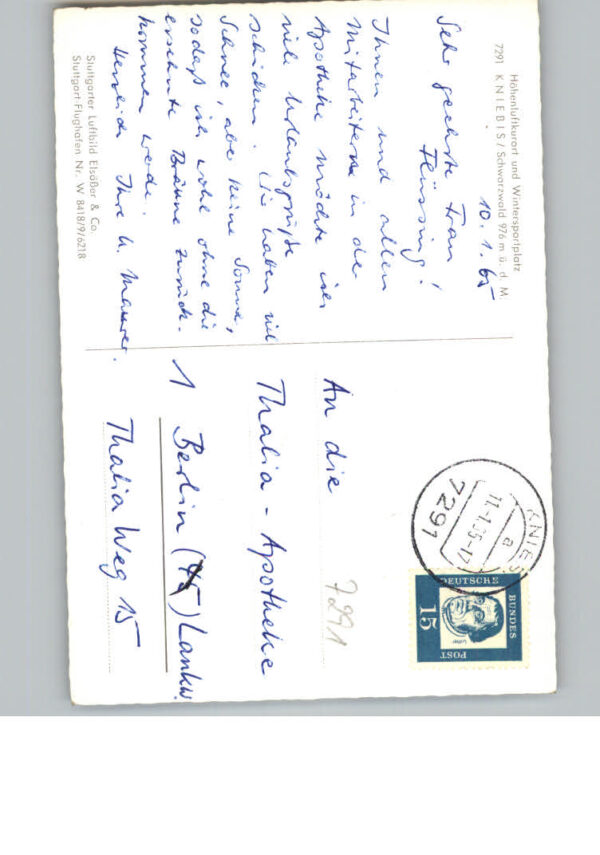 Höhenluftkurort und Wintersportplatz
7291 KNIEBIS / Schwarzwald 976 m ü. d. M.
10.1.65
Sehr geehrte Frau
Flüssing!
Ihnen und allen
Mitarbeitern in der
Apotheke möchte ich
viele Urlaubsgrüße
schicken. Wir haben viel
Schnee, aber keine Sonne,
sodaß ich wohl ohne die
ersehnte Bräune zurück-
kommen werde.
Herzlich Ihre U. Maurer.
Stuttgarter Luftbild Elsäßer & Co.
Stuttgart Flughafen Nr. W 8418/9/6218
KNIEBIS
a
11.-1.65-17
7291
DEUTSCHE
BUNDES
POST
15
Luther
7291
An die
Thalia-Apotheke
1 Berlin (45) Lankw.
Thalia Weg 15